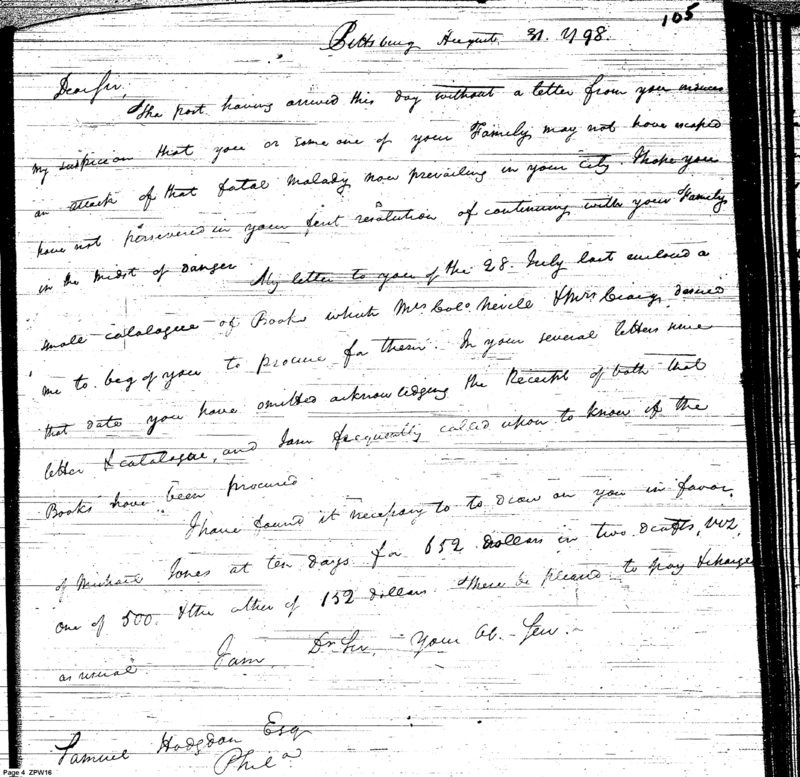 105
Pittsburg August 31. 1798.
Dear Sir,
The post having arrived this day without a letter from you induces
my suspicion that you or some one of your Family may not have escaped
an attack of that fatal malady now prevailing in your city. I hope you
have not persevered in your first resolution of continuing with your Family
in the midst of danger My letter to you of the 28. July last enclosed a
small catalogue of Books which Mrs Colo. Nevile & Mrs Craig desired
me to beg of you to procure for them. In your several letters since
that date you have omitted acknowledging the Receipt of both that
letter & catalogue, and I am frequently called upon to know if the
Books have been procured
I have found it necessary to to draw on you in favor
of Michael Jones at ten days for 652 dollars in two drafts, viz,
one of 500. & the other of 152 dollars. These be pleased to pay & charge
as usual I am, Dr Sir, Your Ob. Ser.
Samuel Hodgdon Esq
Phila
Page 4 ZPW16